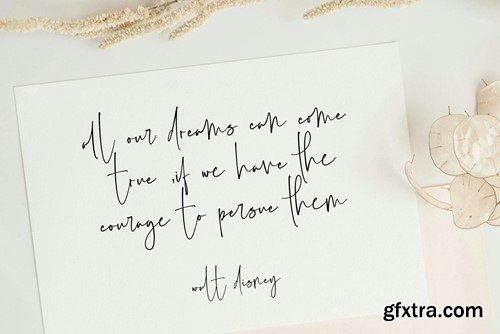 all our dreams can come
true ,if we have the
courage to persue them
walt disney
gfxtra.com